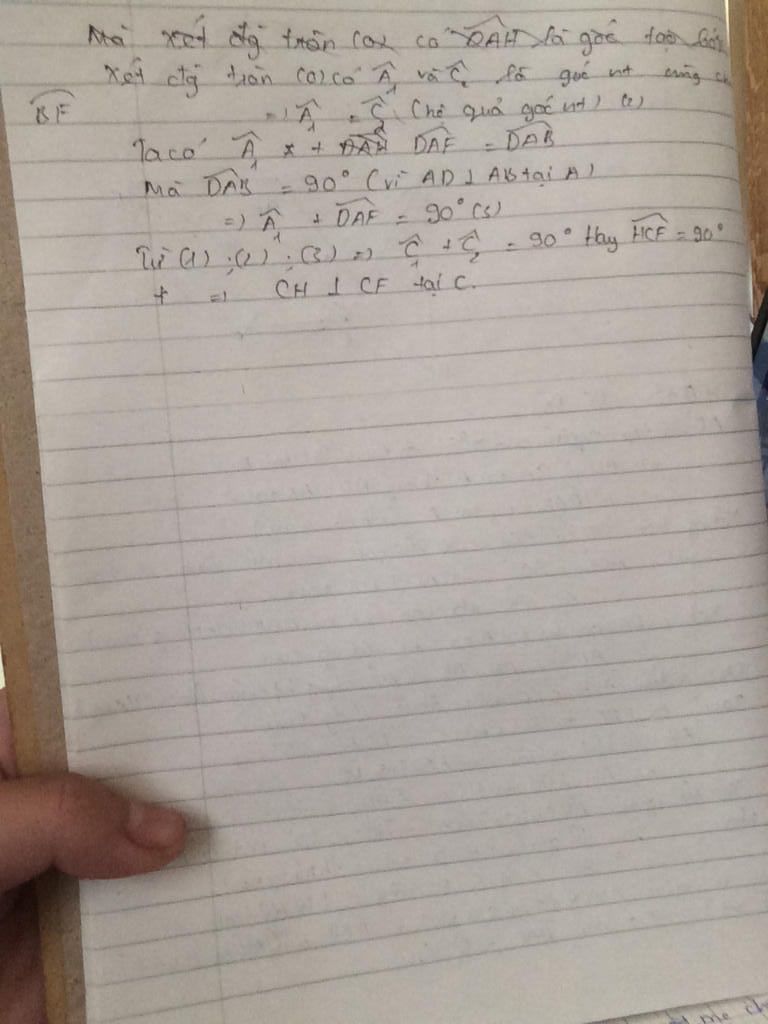 Mà xét đg tròn (O) có DAH là góc tạo bởi
xét đg tròn (O) có Â₁ và Ĉ₂ là góc nt cùng ch
BF
=) Â₁ = Ĉ₂ (hệ quả góc nt) (2)
Ta có Â₁ + DAH DAF = DAB
Mà DAB = 90° (vì AD ⊥ AB tại A)
=) Â₁ + DAF = 90° (3)
Từ (1) ; (2) ; (3) =) Ĉ₁ + Ĉ₂ = 90° Hay HCF = 90°
+ =) CH ⊥ CF tại C.